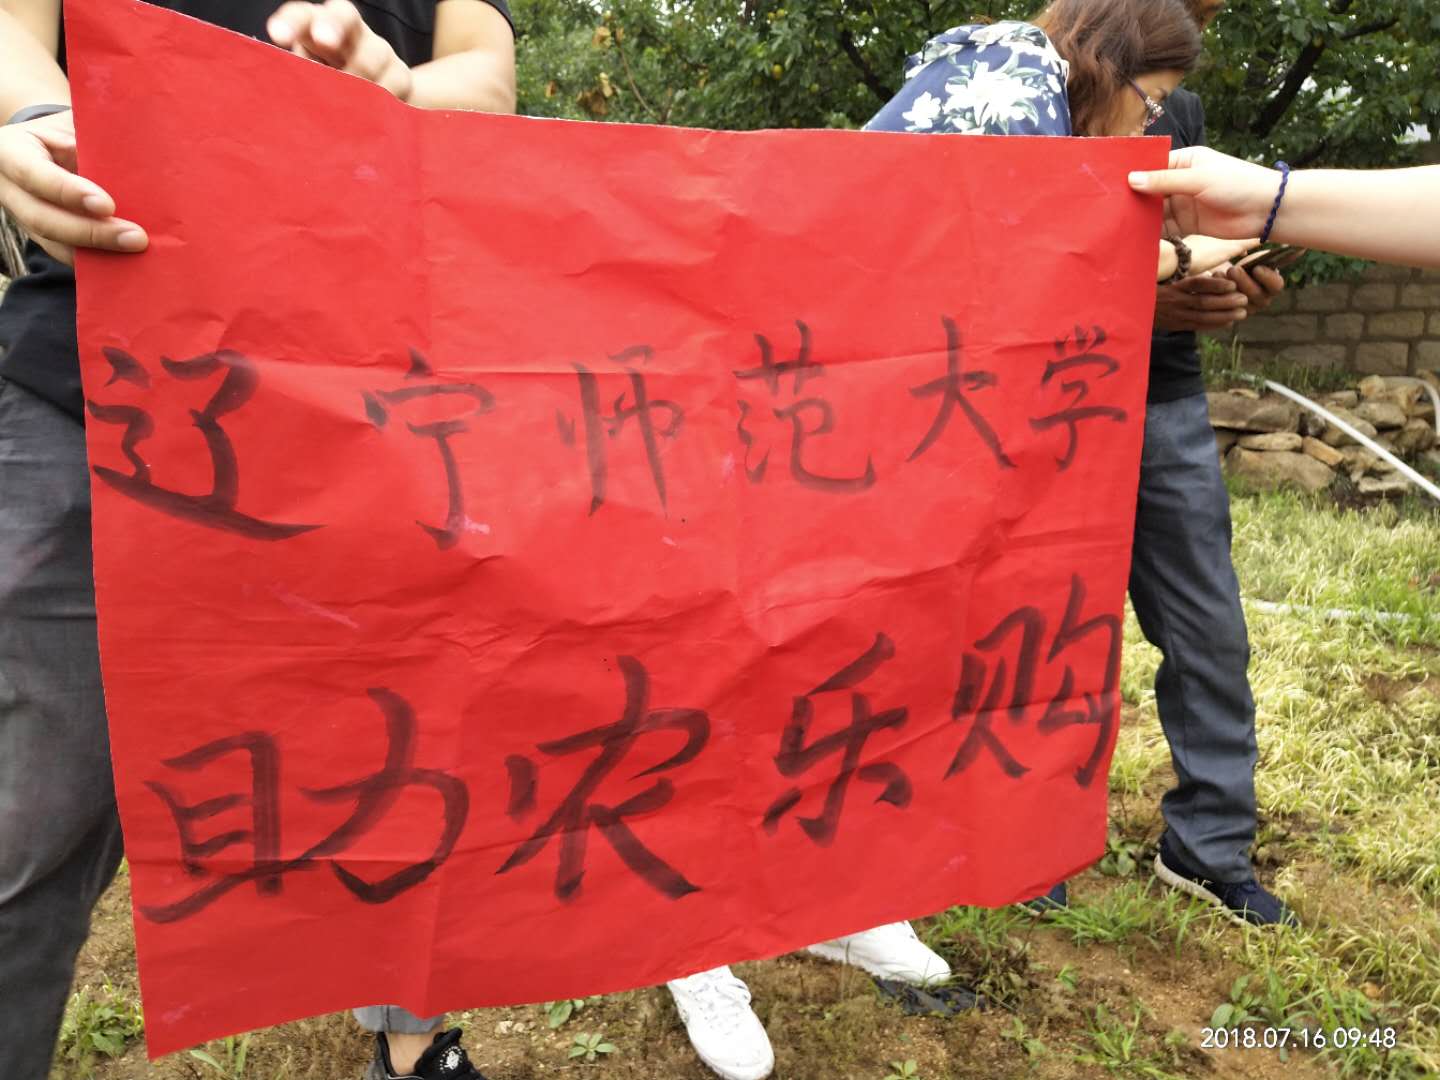 辽宁师范大学
助农乐购
2018.07.16 09:48